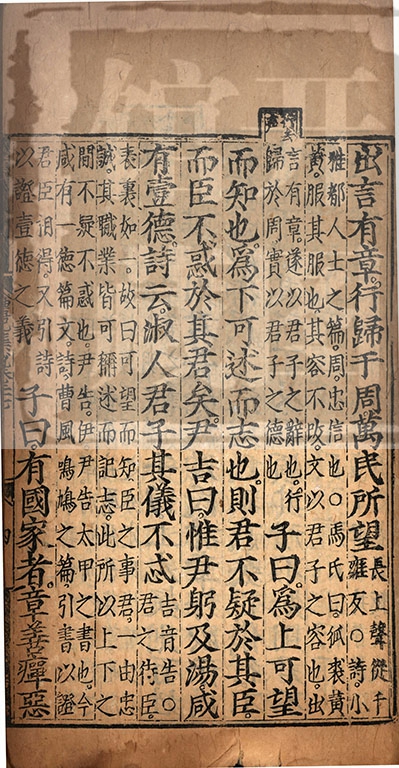 出言有章。行歸于周萬民所望
長上聲從千
雍反○詩。小
雅都人士之篇。周。忠信也○馬氏曰。狐裘黃
黃。服其服也。其容不改。文以君子之容也。出
言有章。遂以君子之辭也。行
歸於周實以君子之德也
子曰。爲上可望
而知也。爲下可述而志也。則君不疑於其臣。
而臣不惑於其君矣。尹吉曰。惟尹躬及湯。咸
有壹德。詩云。淑人君子其儀不忒
吉音告○
君之待臣。
表裏如一。故曰可望而知。臣之事君。一由忠
誠。其職業皆可稱述而記志。此所以上下之
間不疑不惑也。尹告。伊尹告太甲之書也。今
咸有一德篇文。詩。曹風鳲鳩之篇。引書以證
君臣相得。又引詩
以證壹德之義
子曰。有國家者。章善癉惡